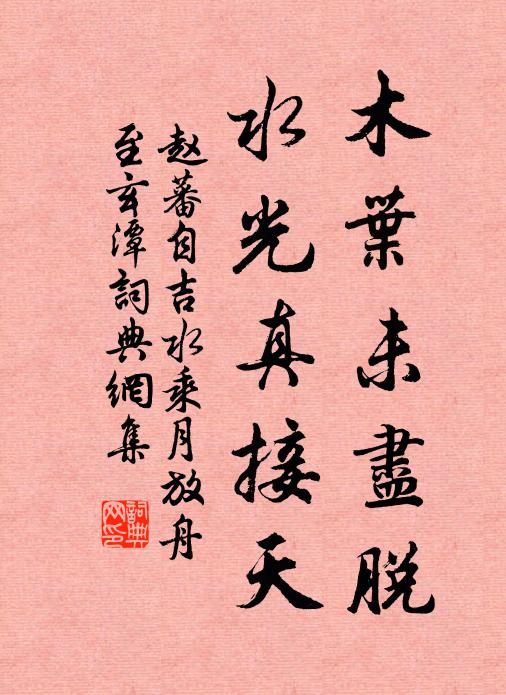 木葉未盡脫
水光真接天
赵蕃自吉水乘月放舟
至玄潭詞典網集
詞典
网印